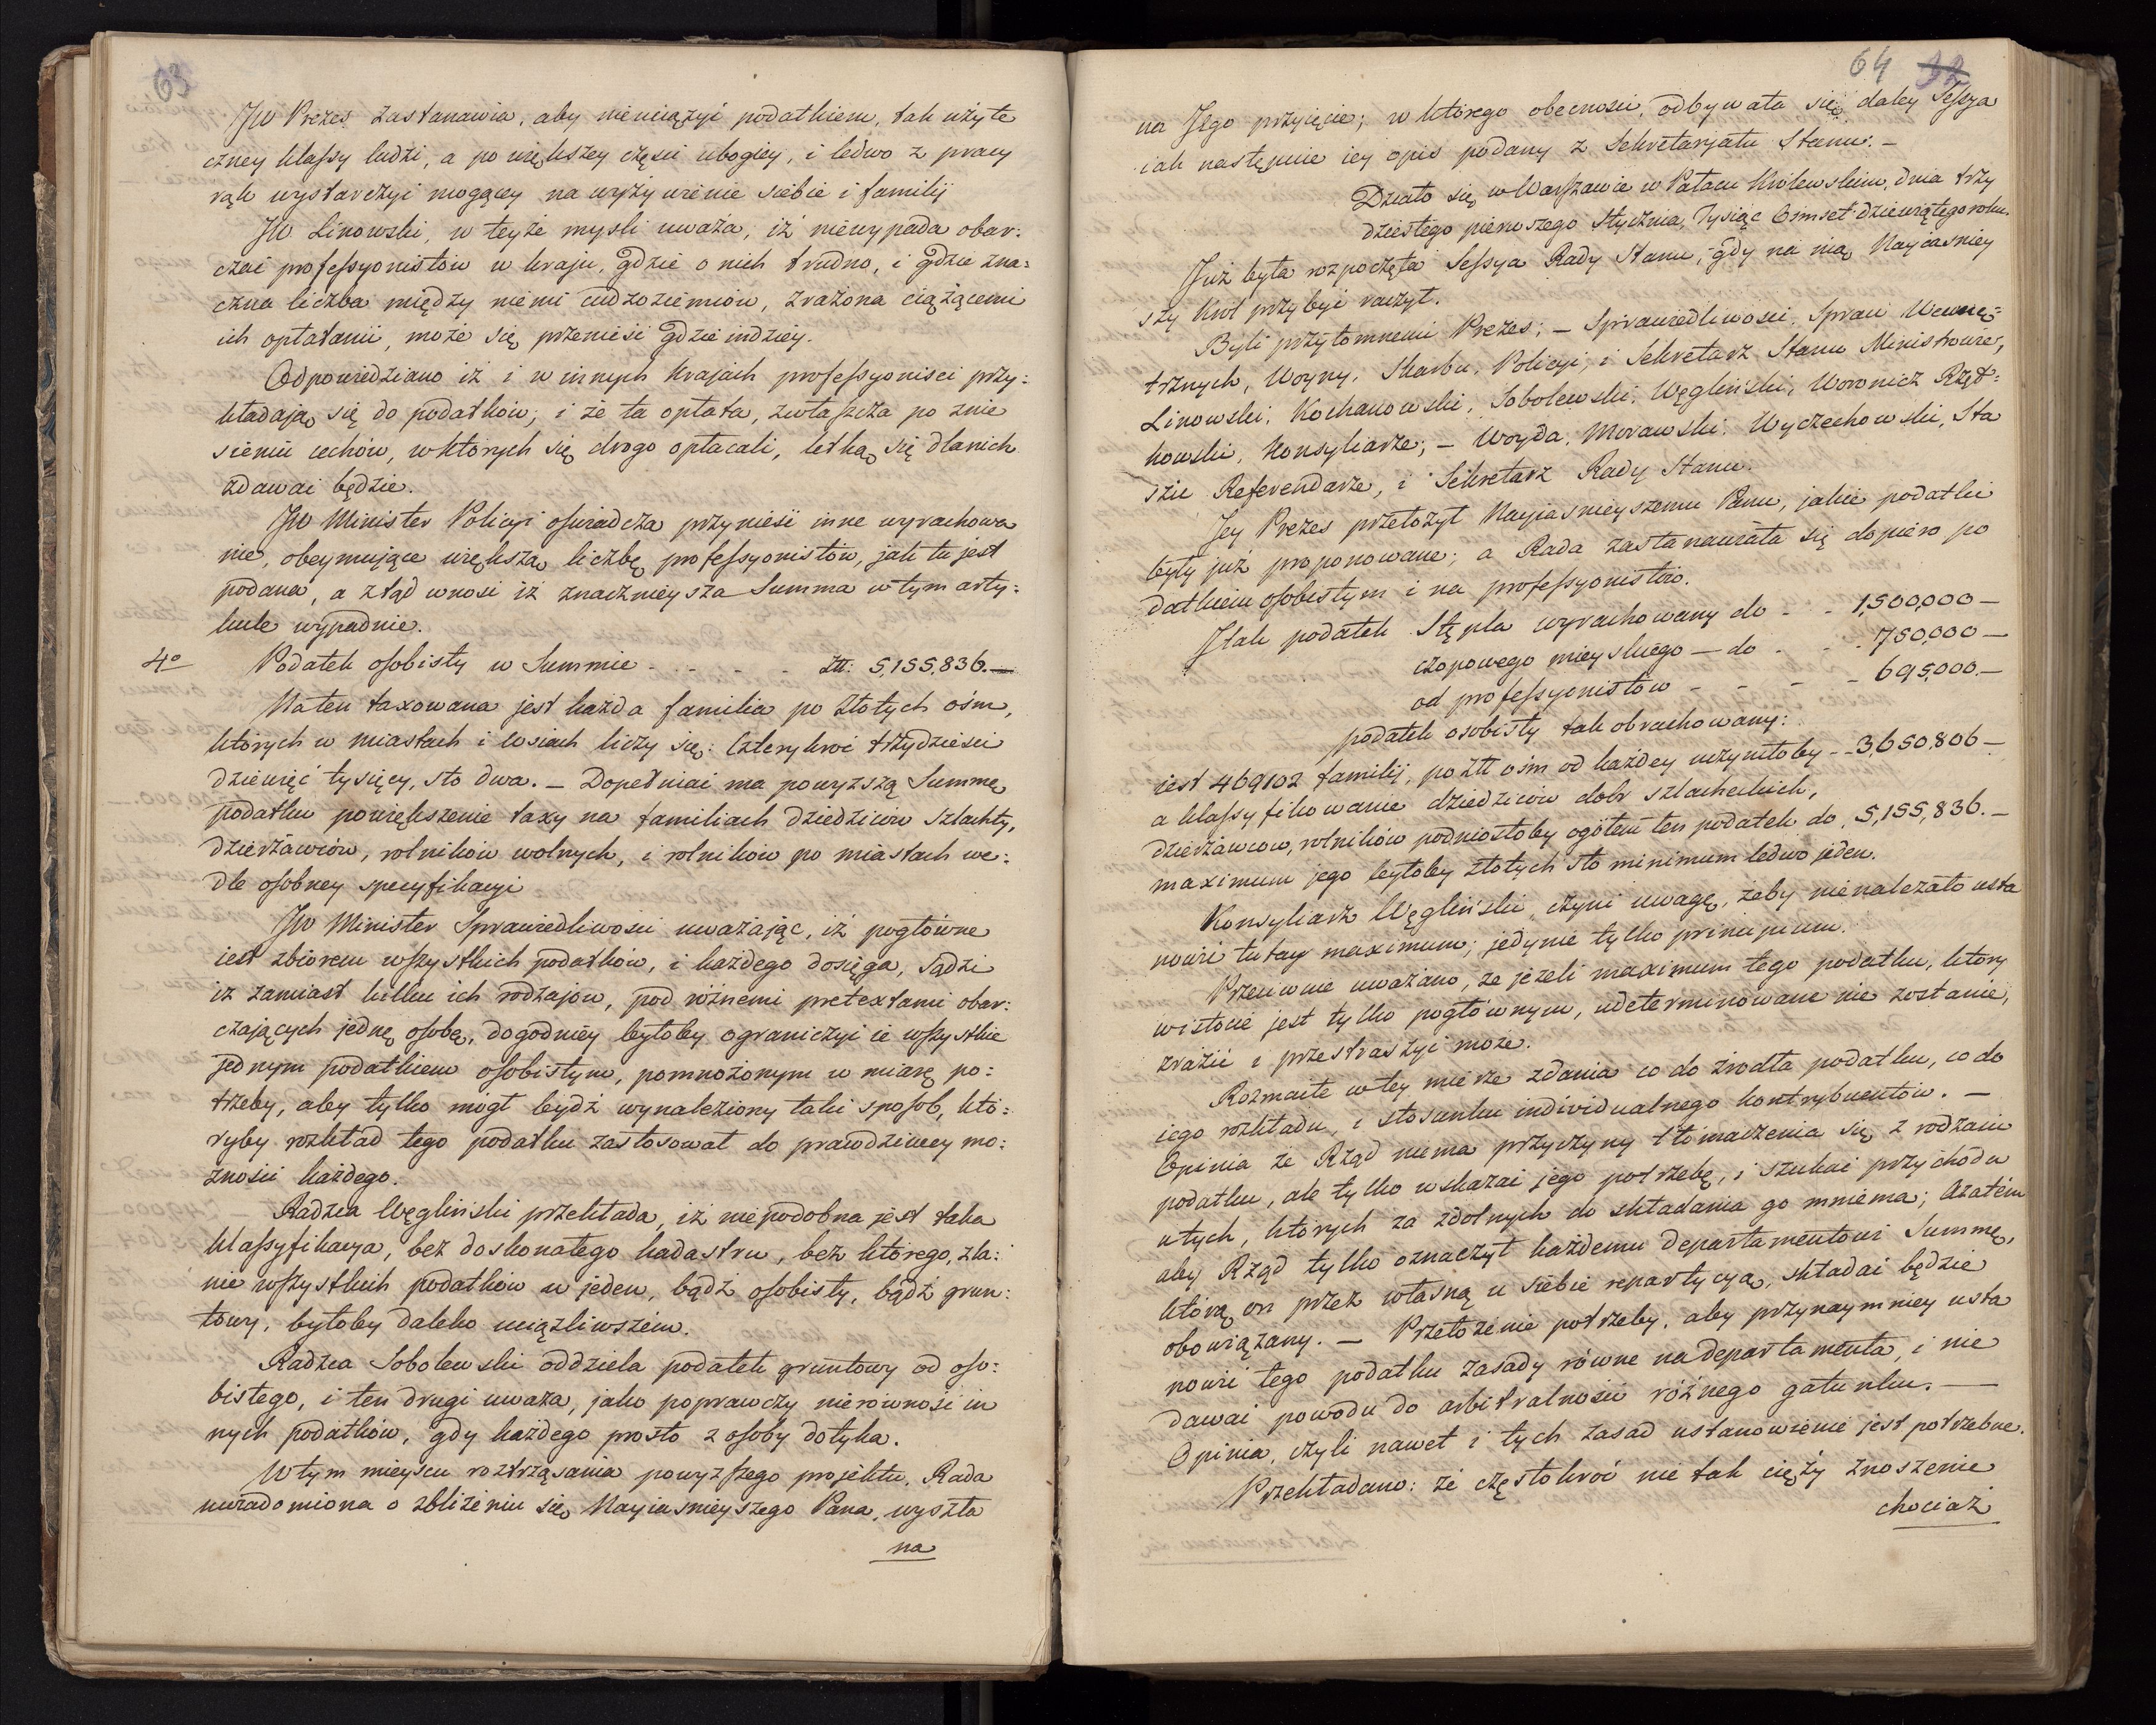 63
JW Prezes zastanawia, aby nieuciążyć podatkiem, tak użyte
czney klassy ludzi, a po większey części ubogiey, i ledwo z pracy
rąk wystarczyć mogącey na wyżywienie siebie i familij
JW Linowski, w teyże mysli uważa, iż niewypada obar:
czać professyonistów w kraju, gdzie o nich trudno, i gdzie zna:
czna liczba między niemi cudzoziemców, zrażona ciążącemi
ich opłatami, może się przenieść gdzie indziey.
Odpowiedziano iż i w innych krajach professyonisci przy:
kładają się do podatków; i że ta opłata, zwłaszcza po znie
sieniu cechów, w których się drogo opłacali, letką się dlanich
zdawać będzie.
JW Minister Policyi oswiadcza przynieść inne wyrachowa
nie, obeymujące większą liczbę professyonistów, jak tu jest
podana, a ztąd wnosi iż znacznieysza Summa w tym arty:
kule wypadnie.
4o Podatek osobisty w Summie - - - - - Złł: 5,155,836.—
Na ten taxowana jest każda familia po Złotych ośm,
których w miastach i wsiach liczy się: Czterykroć trzydzieści
dziewięć tysięcy, sto dwa. — Dopełniać ma powyższą Summę
podatku powiększenie taxy na familiach dziedziców Szlachty,
dzierżawców, rolników wolnych, i rolników po miastach we:
dle osobney specyfikacyi
JW Minister Sprawiedliwości uważając, iż pogłówne
iest zbiorem wszystkich podatków, i każdego dosięga, sądzi
iż zamiast kilku ich rodzajów, pod różnemi pretextami obar:
czających jednę osobę, dogodniey byłoby ograniczyć ie wszystkie
jednym podatkiem osobistym, pomnożonym w miarę po:
trzeby, aby tylko mógł bydź wynaleziony taki sposob, któ:
ryby rozkład tego podatku zastosował do prawdziwey mo:
żności każdego.
Radzca Węgliński przekłada, iż niepodobna jest taka
klassyfikacya, bez doskonałego kadastru, bez którego, zla:
nie wszystkich podatków w jeden, bądź osobisty, bądź grun:
towy, byłoby daleko uciążliwszem.
Radzca Sobolewski oddziela podatek gruntowy od oso:
bistego, i ten drugi uważa, jako poprawczy nierówności in
nych podatków, gdy każdego prosto z osoby dotyka.
W tym mieyscu roztrząsania powyższego projektu, Rada
uwiadomiona o zbliżeniu się Nayiasnieyszego Pana, wyszła
na
64 32
na Jego przyięcie; w którego obecności, odbywała się daley Sessya
iak następuie iey opis podany z Sekretarjatu Stanu. —
Działo się w Warszawie w Pałacu Królewskim, dnia trzy
dziestego pierwszego Stycznia, Tysiąc Ośmset dziewiątego roku.
Już była rozpoczęta Sessya Rady Stanu, gdy na nią Nayiasniey
szy Król przybyć raczył.
Byli przytomnemi Prezes; — Sprawiedliwości, Spraw Wewnę:
trznych, Woyny, Skarbu, Policyi, i Sekretarz Stanu Ministrowie,
Linowski, Kochanowski, Sobolewski, Węgliński, Woronicz Rząt:
kowski, Konsyliarze; — Woyda, Morawski, Wyczechowski, Sta
szic Referendarze, i Sekretarz Rady Stanu.
Jey Prezes przełożył Nayiasnieyszemu Panu, jakie podatki
były już proponowane; a Rada zastanawiała się dopiero po
datkiem osobistym i na professyonistów.
I tak podatek Stępla wyrachowany do - - 1,500,000 —
czopowego mieyskiego — do - - - 750,000 —
od professyonistów - - - - 695,000.—
podatek osobisty tak obrachowany:
iest 469102 familij, po złł ośm od każdey uczyniłoby - - 3,650,806 —
a klassyfikowanie dziedziców dobr szlacheckich,
dzierżawców, rolników podniosłoby ogółem ten podatek do, 5,155,836. —
maximum jego byłoby złotych sto minimum ledwo jeden.
Konsyliarz Węgliński, czyni uwagę, żeby nie należało usta
nowić tutay maximum; jedynie tylko principium.
Przeciwne uważano, że jeżeli maximum tego podatku, który
w istocie jest tylko pogłównym, udeterminowane nie zostanie,
zrazić i przestraszyć może.
Rozmaite w tey mierze zdania co do źrodła podatku, co do
iego rozkładu, i stosunku individualnego kontrybuentów. —
Opinia że Rząd niema przyczyny tłómaczenia się z rodzaiu
podatku, ale tylko wskazać jego potrzebę, i szukać przychodu
u tych, których za zdolnych do składania go mniema; A zatem
aby Rząd tylko oznaczył każdemu departamentowi Summę,
którą on przez własną u siebie repartycyą, składać będzie
obowiązany. — Przełożenie potrzeby, aby przynaymniey usta
nowić tego podatku zasady równe na departamenta, i nie
dawać powodu do arbitralności różnego gatunku. —
Opinia, czyli nawet i tych zasad ustanowienie jest potrzebne.
Przekładano: że częstokroć nie tak cięży znoszenie
chociaż